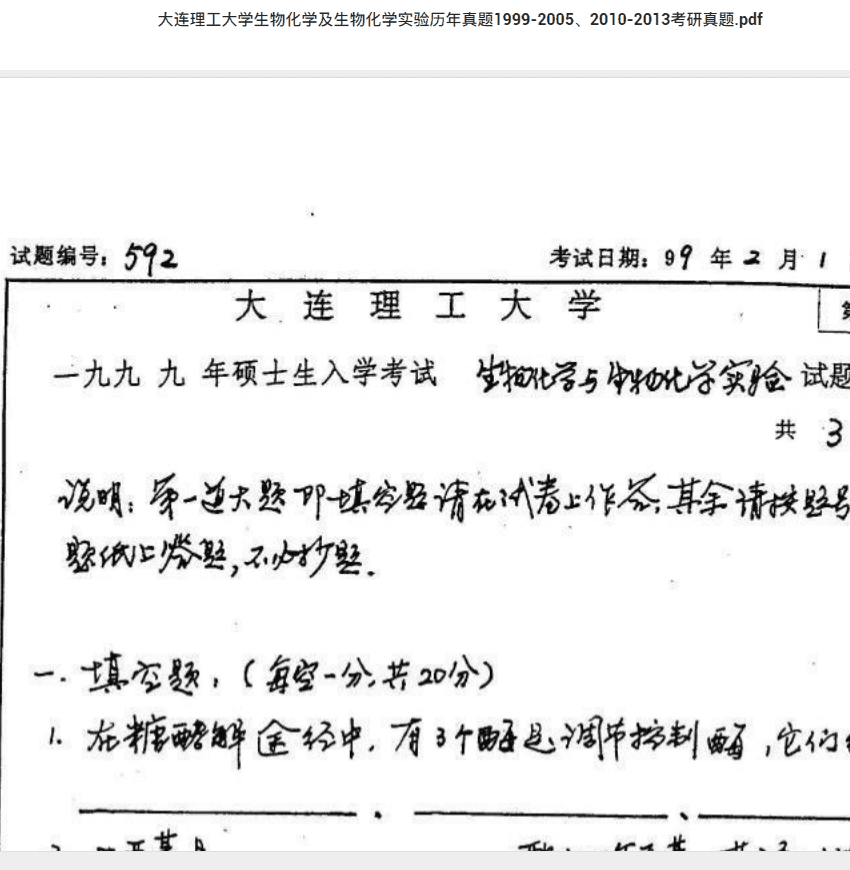 大连理工大学生物化学及生物化学实验历年真题1999-2005、2010-2013考研真题.pdf
试题编号：592 考试日期：99 年 2 月 1
大 连 理 工 大 学
一九九 九 年硕士生入学考试 生物化学与生物化学实验 试题
共 3
说明：第一道大题即填空题请在试卷上作答；其余请按题号
题纸上答题，不必抄题.
一. 填空题：(每空一分，共20分)
1. 在糖酵解途经中，有3个酶是调节控制酶，它们